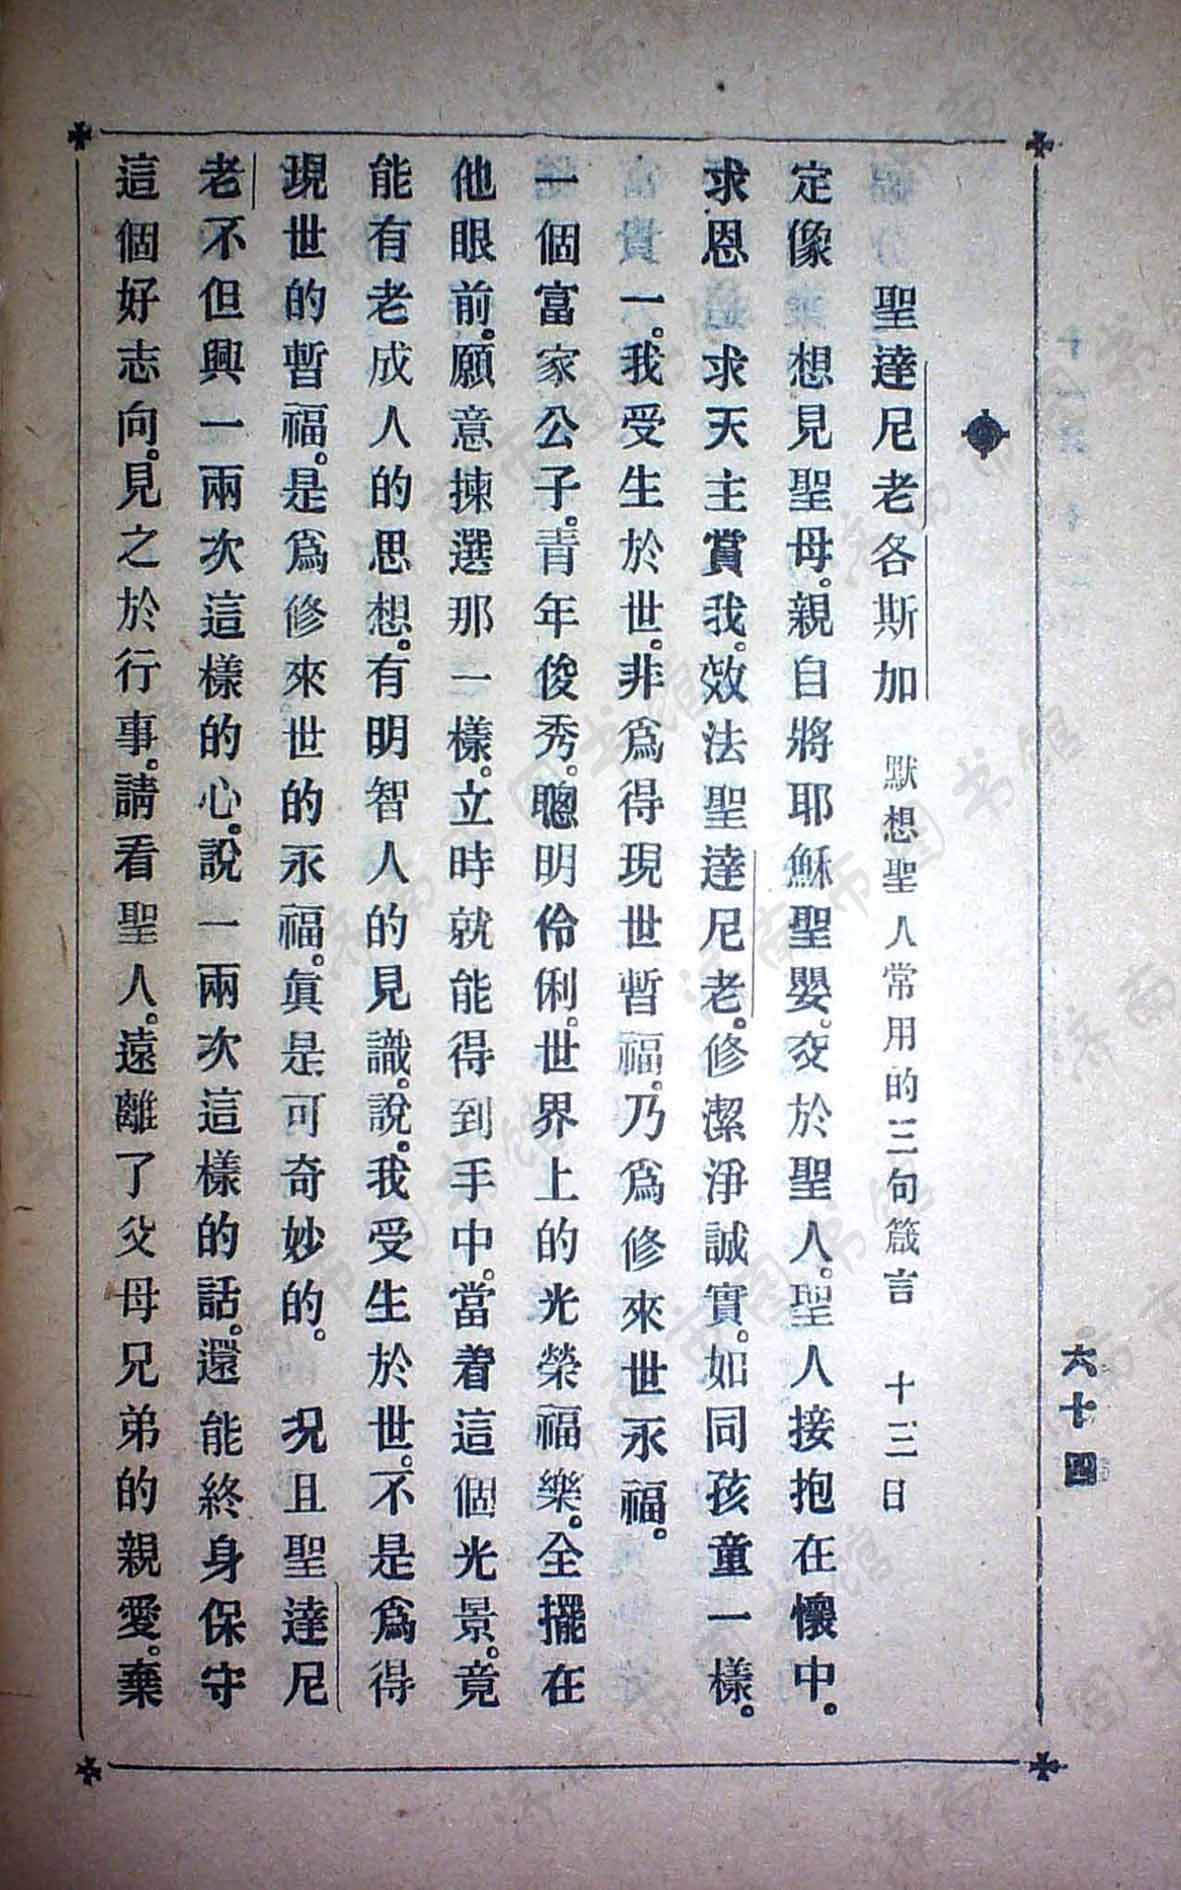 六十四
聖達尼老各斯加 默想聖人常用的三句箴言 十三日
定像 想見聖母。親自將耶穌聖嬰。交於聖人。聖人接抱在懷中。
求恩 求天主賞我。效法聖達尼老。修潔淨誠實。如同孩童一樣。
一。我受生於世。非爲得現世暫福。乃爲修來世永福。
一個富家公子。青年俊秀。聰明伶俐。世界上的光榮福樂。全擺在
他眼前。願意揀選那一樣。立時就能得到手中。當着這個光景。竟
能有老成人的思想。有明智人的見識。說。我受生於世。不是爲得
現世的暫福。是爲修來世的永福。眞是可奇妙的。 况且聖達尼
老不但興一兩次這樣的心。說一兩次這樣的話。還能終身保守
這個好志向。見之於行事。請看聖人。遠離了父母兄弟的親愛。棄